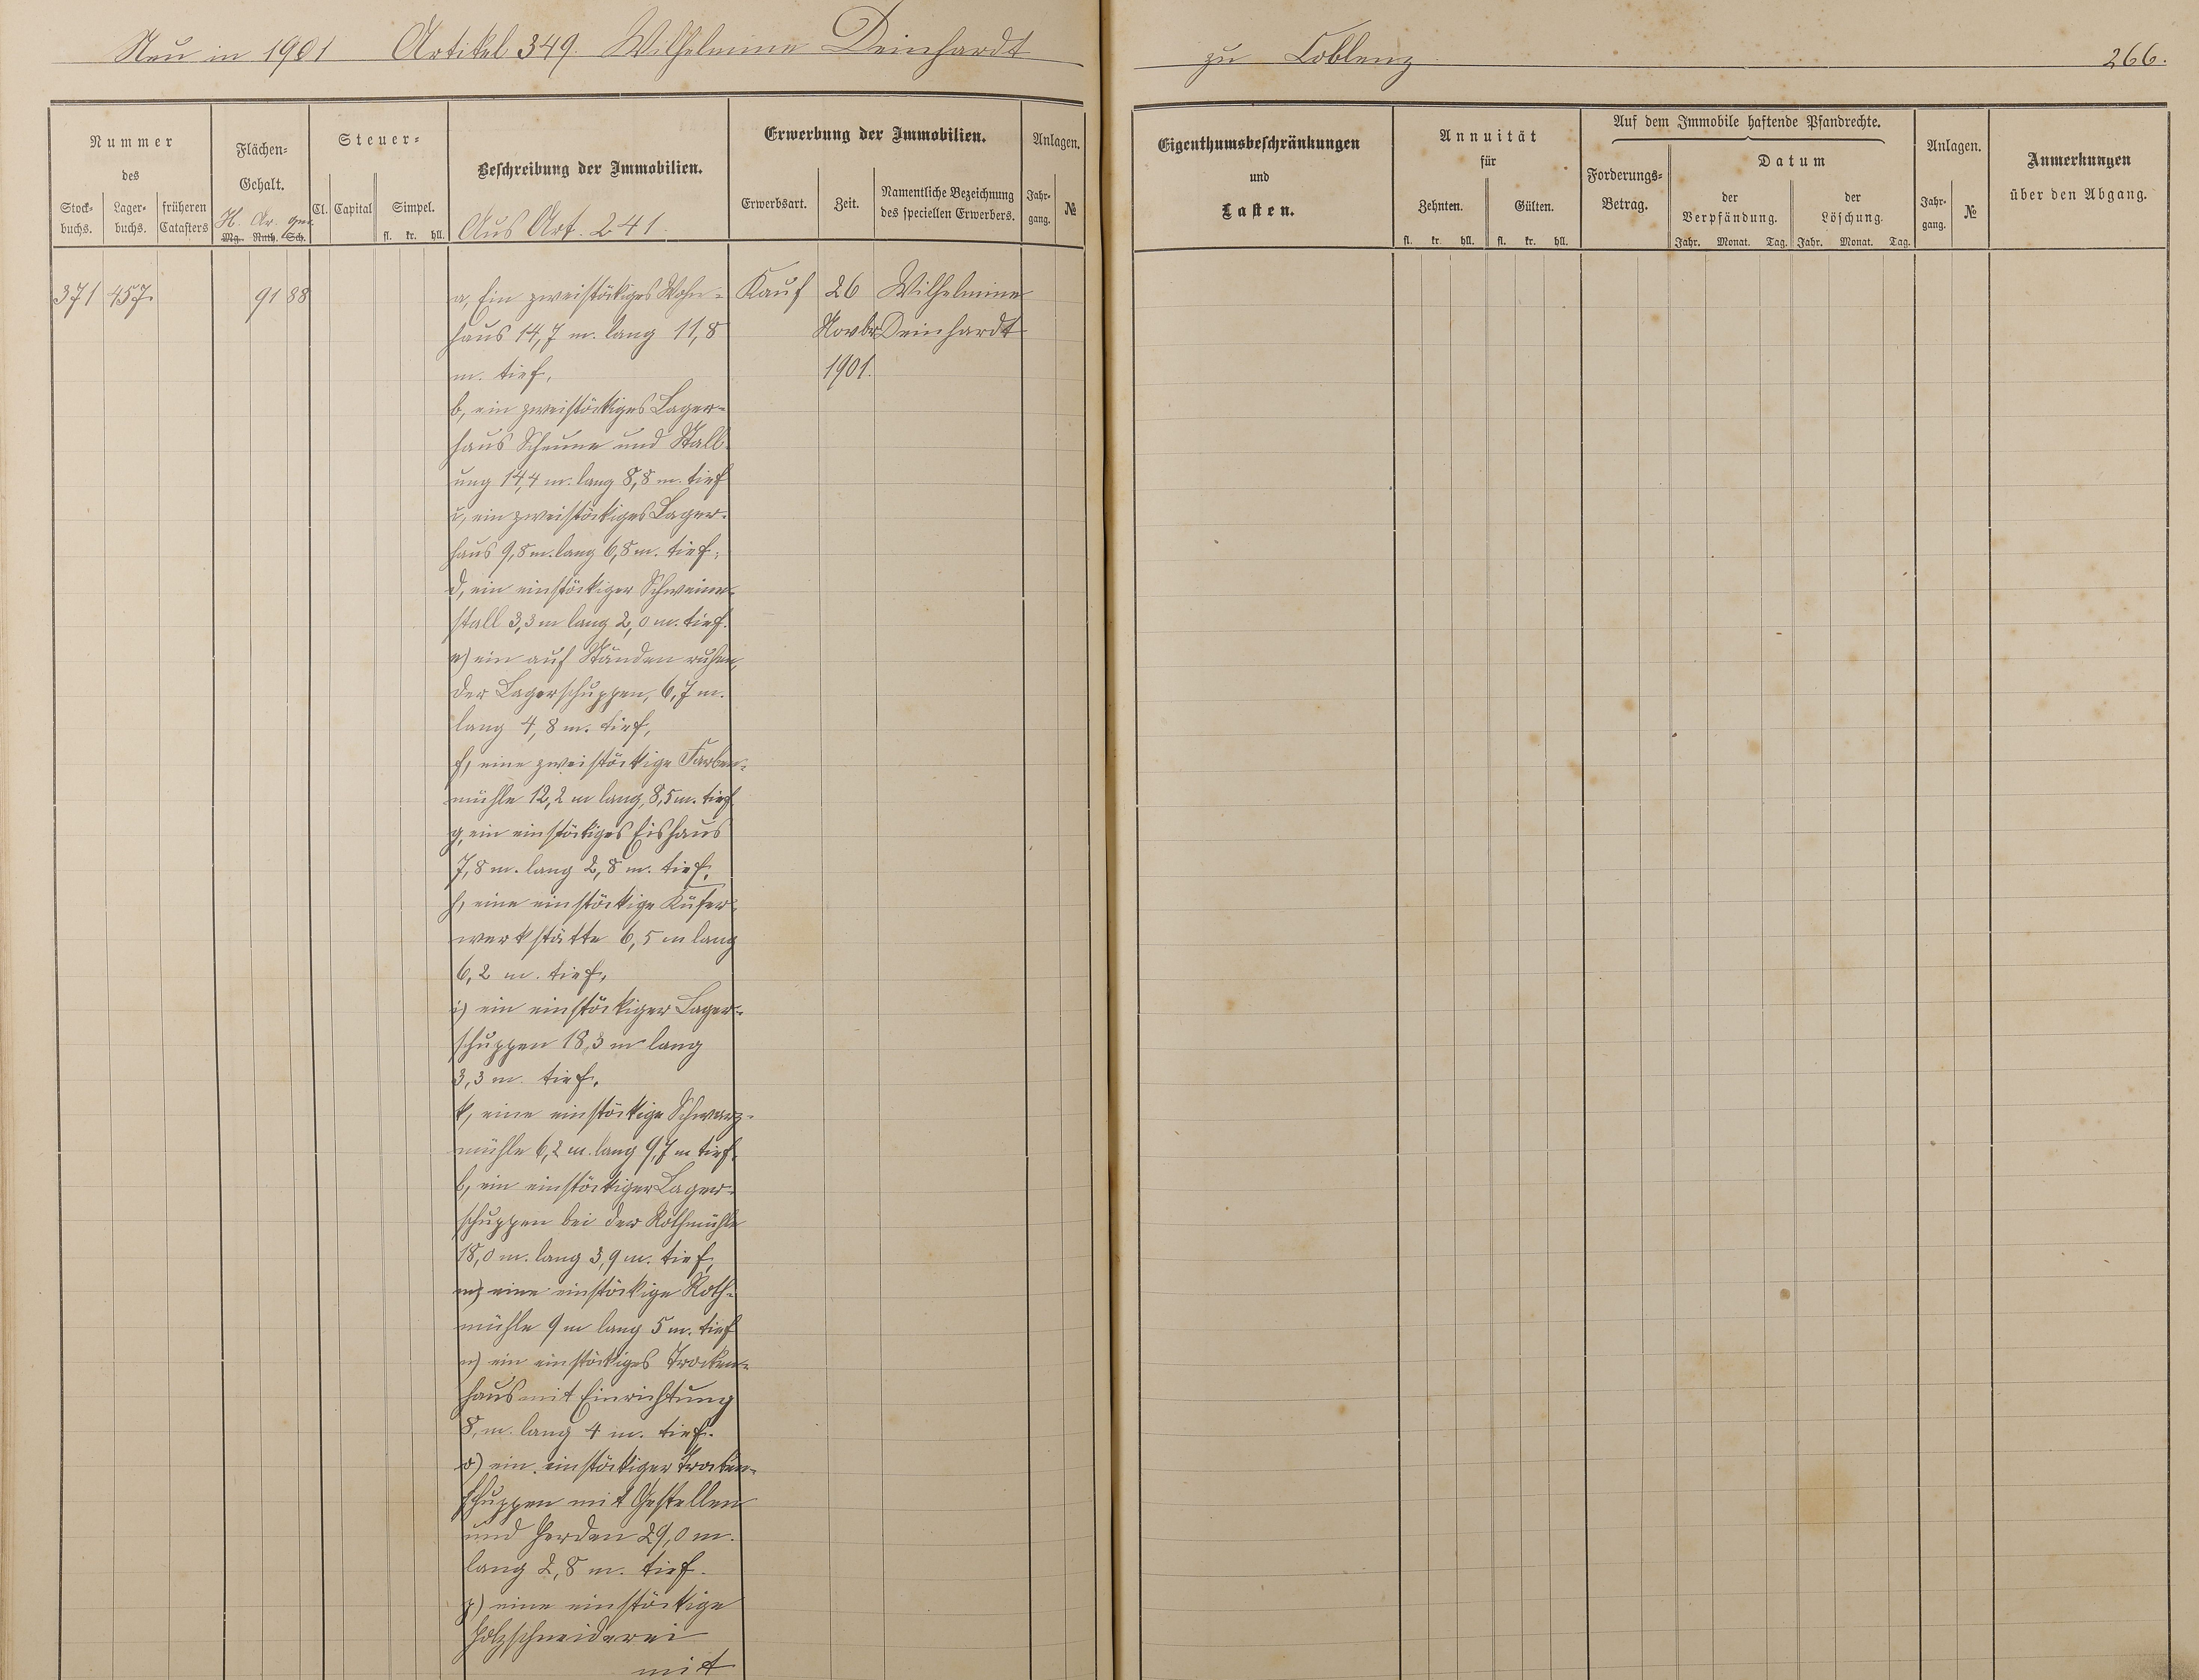 Neu in 1901 Artikel 349. Wilhelmine Deinhardt
zu Coblenz
266.
Nummer
des
Stock-
buchs.
Lager-
buchs.
früheren
Catasters
Flächen-
Gehalt.
H. Ar. qm.
Mg. Ruth. Sch.
Steuer-
Cl.
Capital
Simpel.
fl. kr. hll.
Beschreibung der Immobilien.
Aus Art. 241.
Erwerbung der Immobilien.
Erwerbsart.
Zeit.
Namentliche Bezeichnung
des speciellen Erwerbers.
Anlagen.
Jahr-
gang.
№
Eigenthumsbeschränkungen
und
Lasten.
Annuität
für
Zehnten.
Gülten.
fl. kr. hll. fl. kr. hll.
Auf dem Immobile haftende Pfandrechte.
Forderungs-
Betrag.
Datum
der
Verpfändung.
der
Löschung.
Jahr. Monat. Tag. Jahr. Monat. Tag.
Anlagen.
Jahr-
gang.
№
Anmerkungen
über den Abgang.
371 457. 91 88 a, Ein zweistöckiges Wohn- Kauf 26 Wilhelmine
haus 14,7 m. lang 11,8 Novbr Deinhardt
m. tief, 1901.
b, ein zweistöckiges Lager-
haus Scheune und Stall-
ung 14,4 m. lang 8,8 m. tief
c, ein zweistöckiges Lager-
haus 9,8 m. lang 6,8 m. tief,
d, ein einstöckiger Schweine-
stall 3,3 m lang 2,0 m. tief.
e) ein auf Ständen ruhen-
der Lagerschuppen, 6,7 m.
lang 4,8 m. tief,
f, eine zweistöckige Farben-
mühle 12,2 m lang, 8,5 m. tief
g, ein einstöckiges Eishaus
7,8 m. lang 2,8 m. tief,
h, eine einstöckige Küfer-
werkstätte 6,5 m lang
6,2 m. tief,
i) ein einstöckiger Lager-
schuppen 18,3 m lang
3,3 m. tief,
k, eine einstöckige Schwarz-
mühle 6,2 m. lang 9,7 m tief,
l, ein einstöckiger Lager-
schuppen bei der Rothmühle
18,0 m. lang 3,9 m. tief,
m) eine einstöckige Roth-
mühle 9 m lang 5 m. tief
n) ein einstöckiges Trocken-
haus mit Einrichtung
8, m. lang 4 m. tief.
o) ein einstöckiger Trocken-
schuppen mit Gestellen
und Herden 29,0 m.
lang 2,8 m. tief.
p) eine einstöckige
Holzschneiderei
mit